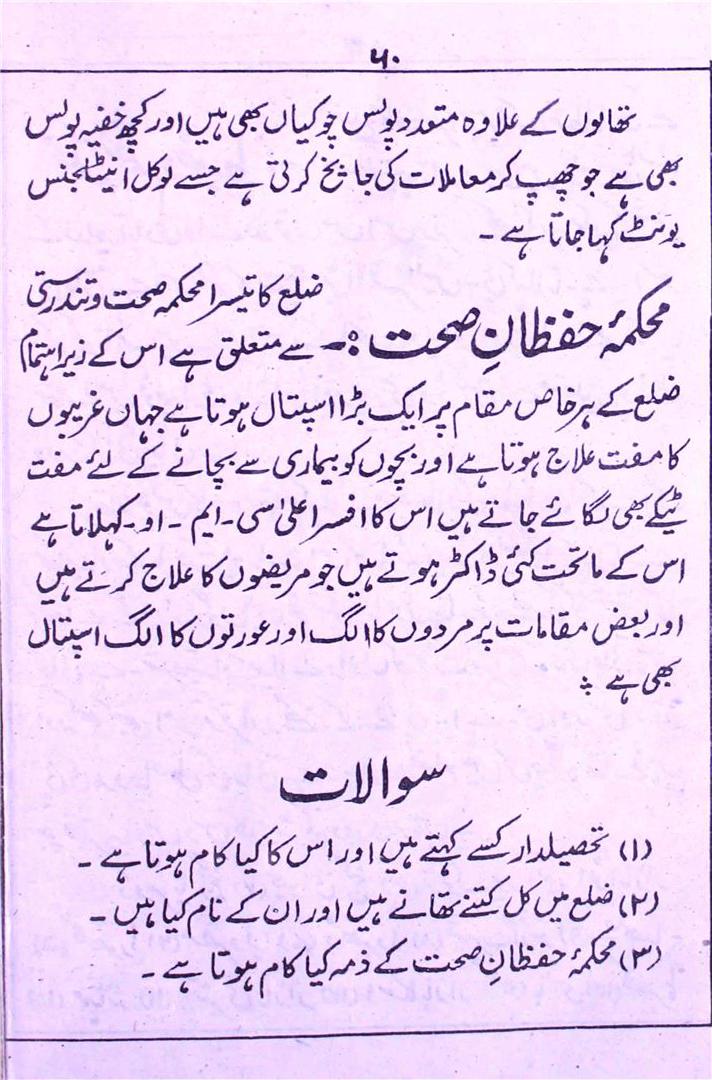 ۶۰
تھانوں کے علاوہ متعدد پولس چوکیاں بھی ہیں اور کچھ خفیہ پولس
بھی ہے جو چھپ کر معاملات کی جانچ کرتی ہے جسے لوکل انیٹلجنس
یونٹ کہا جاتا ہے ۔
ضلع کا تیسرا محکمہ صحت و تندرستی
محکمۂ حفظانِ صحت :۔ سے متعلق ہے اس کے زیر اہتمام
ضلع کے ہر خاص مقام پر ایک بڑا اسپتال ہوتا ہے جہاں غریبوں
کا مفت علاج ہوتا ہے اور بچوں کو بیماری سے بچانے کے لئے مفت
ٹیکے بھی لگائے جاتے ہیں اس کا افسر اعلیٰ سی ۔ ایم ۔ او ۔ کہلاتا ہے
اس کے ماتحت کئی ڈاکٹر ہوتے ہیں جو مریضوں کا علاج کرتے ہیں
اور بعض مقامات پر مردوں کا الگ اور عورتوں کا الگ اسپتال
بھی ہے ۔
سوالات
(۱) تحصیلدار کسے کہتے ہیں اور اس کا کیا کام ہوتا ہے ۔
(۲) ضلع میں کل کتنے تھانے ہیں اور ان کے نام کیا ہیں ۔
(۳) محکمۂ حفظانِ صحت کے ذمہ کیا کام ہوتا ہے ۔